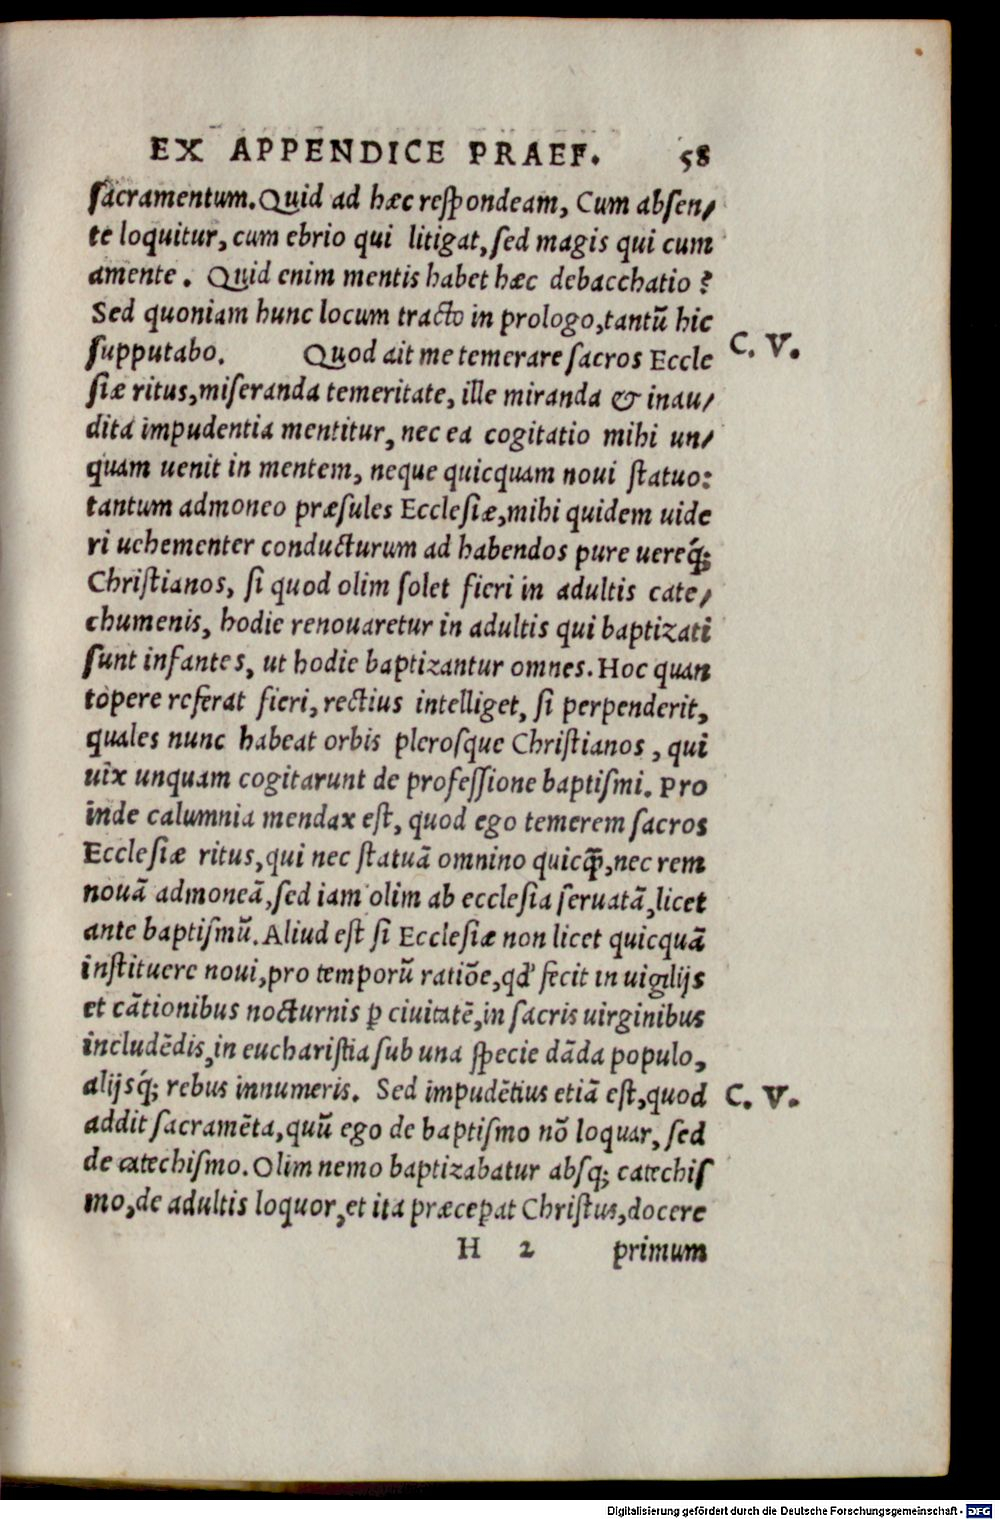 EX APPENDICE PRAEF. 58
sacramentum. Quid ad hæc respondeam, Cum absen/
te loquitur, cum ebrio qui litigat, sed magis qui cum
amente. Quid enim mentis habet hæc debacchatio?
Sed quoniam hunc locum tracto in prologo, tantũ hic
supputabo. Quod ait me temerare sacros Eccle
siæ ritus, miseranda temeritate, ille miranda & inau/
dita impudentia mentitur, nec ea cogitatio mihi un/
quam uenit in mentem, neque quicquam noui statuo:
tantum admoneo præsules Ecclesiæ, mihi quidem uide
ri uehementer conducturum ad habendos pure uereq́;
Christianos, si quod olim solet fieri in adultis cate/
chumenis, hodie renouaretur in adultis qui baptizati
sunt infantes, ut hodie baptizantur omnes. Hoc quan
topere referat fieri, rectius intelliget, si perpenderit,
quales nunc habeat orbis plerosque Christianos, qui
uix unquam cogitarunt de professione baptismi. Pro
inde calumnia mendax est, quod ego temerem sacros
Ecclesiæ ritus, qui nec statuã omnino quicq̃, nec rem
nouã admoneã, sed iam olim ab ecclesia seruatã, licet
ante baptismũ. Aliud est si Ecclesiæ non licet quicquã
instituere noui, pro temporũ ratiõe, qđ fecit in uigilijs
et cãtionibus nocturnis ꝑ ciuitatẽ, in sacris uirginibus
includẽdis, in eucharistia sub una specie dãda populo,
alijsq́; rebus innumeris. Sed impudẽtius etiã est, quod
addit sacramẽta, quũ ego de baptismo nõ loquar, sed
de catechismo. Olim nemo baptizabatur absq; catechis
mo, de adultis loquor, et ita præceperat Christus, docere
H 2 primum
C. V.
C. V.
Digitalisierung gefördert durch die Deutsche Forschungsgemeinschaft - DFG